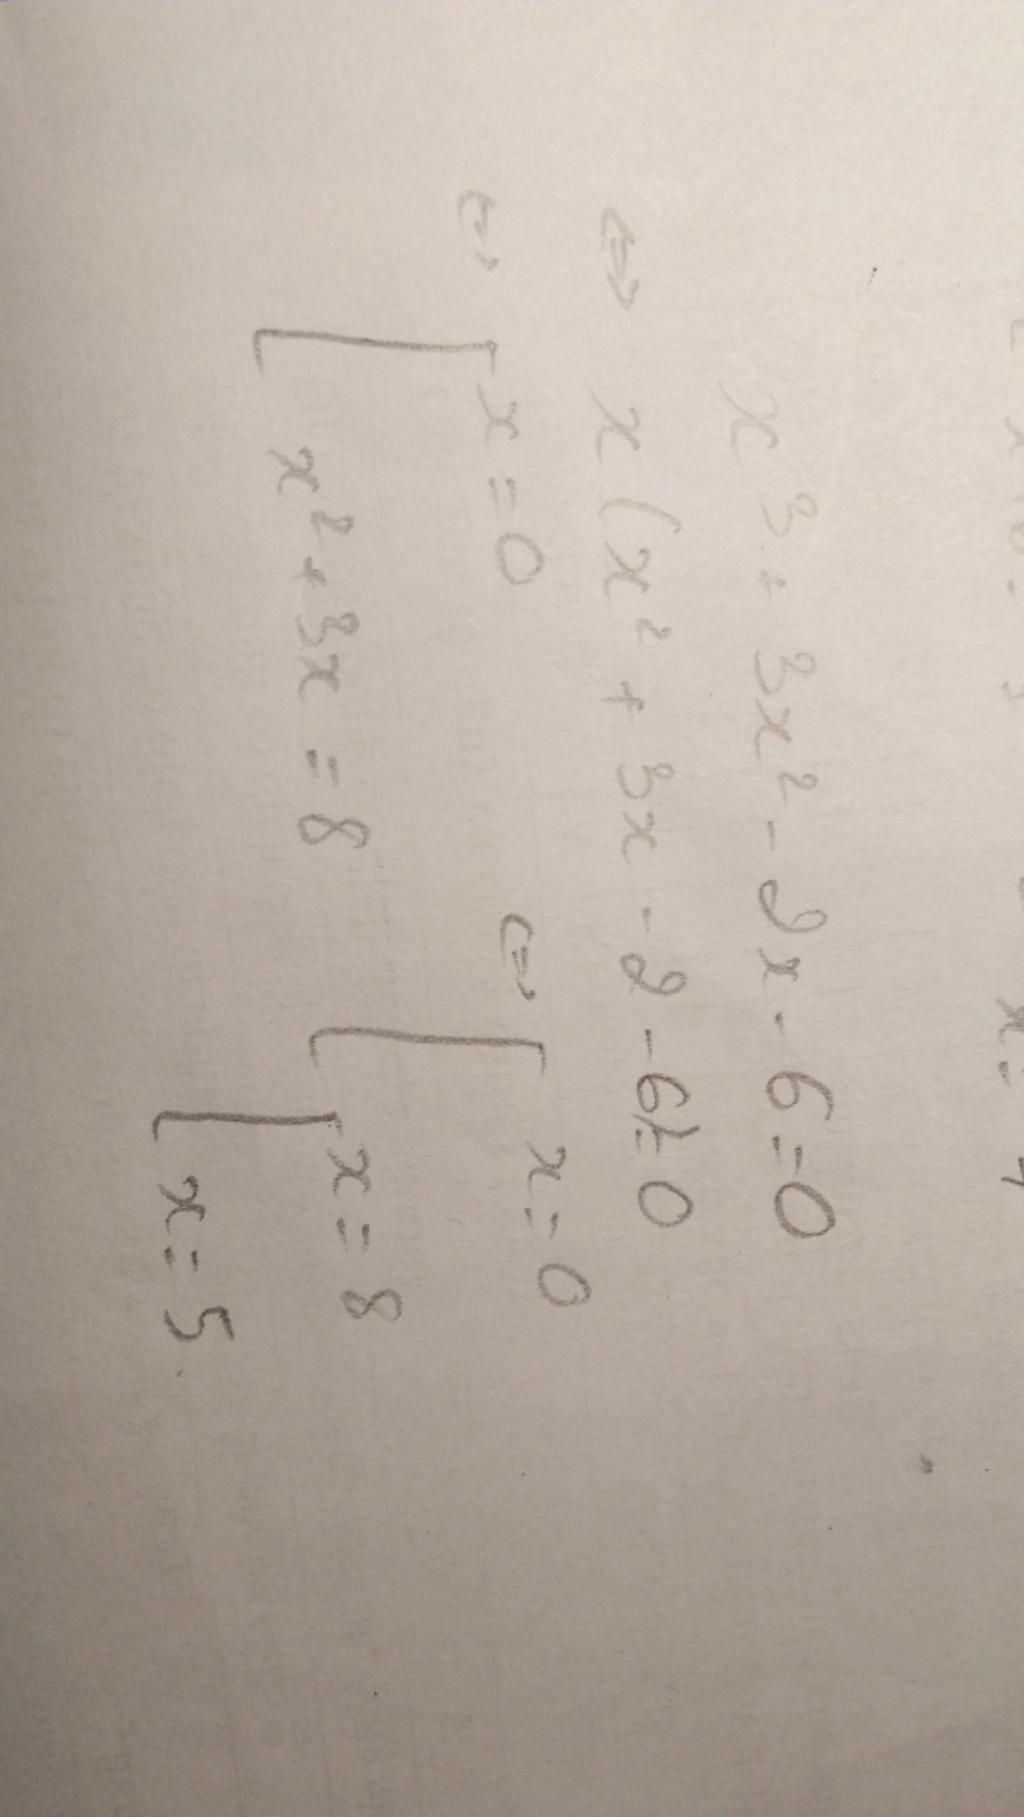 x³ + 3x² - 2x - 6 = 0
⇔ x (x² + 3x - 2 - 6) = 0
⇔ [ x = 0
[ x² + 3x = 8
⇔ [ x = 0
[ x = 8
[ x = 5